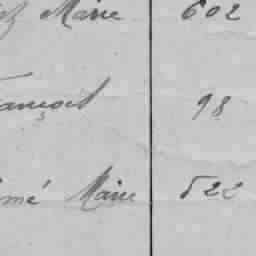 Marie 602
ançois 98
mé Marie 522